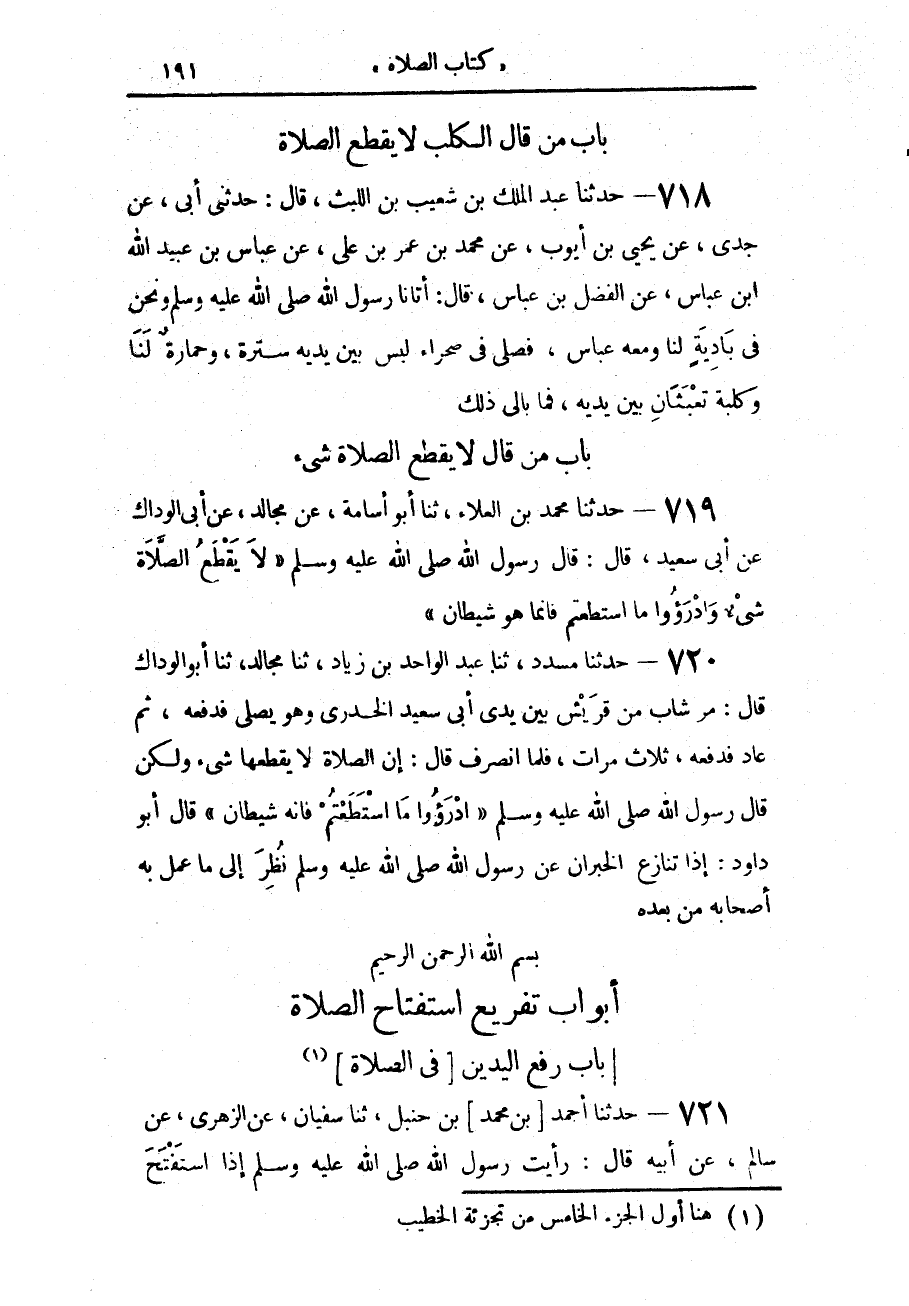 « كتاب الصلاة » ١٩١
باب من قال الكلب لا يقطع الصلاة
٧١٨ — حدثنا عبد الملك بن شعيب بن الليث ، قال : حدثنى أبى ، عن
جدى ، عن يحيى بن أيوب ، عن محمد بن عمر بن على ، عن عباس بن عبيد الله
ابن عباس ، عن الفضل بن عباس ، قال : أتانا رسول الله صلى الله عليه وسلم ونحن
فى بَادِيَةٍ لنا ومعه عباس ، فصلى فى صحراء ليس بين يديه سترة ، وحمارةٌ لَنَا
وكلبة تعْبَثَانِ بين يديه ، فما بالى ذلك
باب من قال لا يقطع الصلاة شىء
٧١٩ — حدثنا محمد بن العلاء ، ثنا أبو أسامة ، عن مجالد ، عن أبى الوداك
عن أبى سعيد ، قال : قال رسول الله صلى الله عليه وسلم « لاَ يَقْطَعُ الصَّلَاةَ
شىْءٌ وَادْرَؤُوا ما استطعتم فانما هو شيطان »
٧٢٠ — حدثنا مسدد ، ثنا عبد الواحد بن زياد ، ثنا مجالد ، ثنا أبو الوداك
قال : مر شاب من قرَيْش بين يدى أبى سعيد الخدرى وهو يصلى فدفعه ، ثم
عاد فدفعه ، ثلاث مرات ، فلما انصرف قال : إن الصلاة لا يقطعها شىء ولكن
قال رسول الله صلى الله عليه وسلم « ادْرَؤُوا مَا اسْتَطَعْتُمْ فانه شيطان » قال أبو
داود : إذا تنازع الخبران عن رسول الله صلى الله عليه وسلم نُظِرَ إلى ما عمل به
أصحابه من بعده
بسم الله الرحمن الرحيم
أبواب تفريع استفتاح الصلاة
[باب رفع اليدين [فى الصلاة] (١)
٧٢١ — حدثنا أحمد [بن محمد] بن حنبل ، ثنا سفيان ، عن الزهرى ، عن
سالم ، عن أبيه قال : رأيت رسول الله صلى الله عليه وسلم إذا استَفْتَحَ
(١) هنا أول الجزء الخامس من تجزئة الخطيب